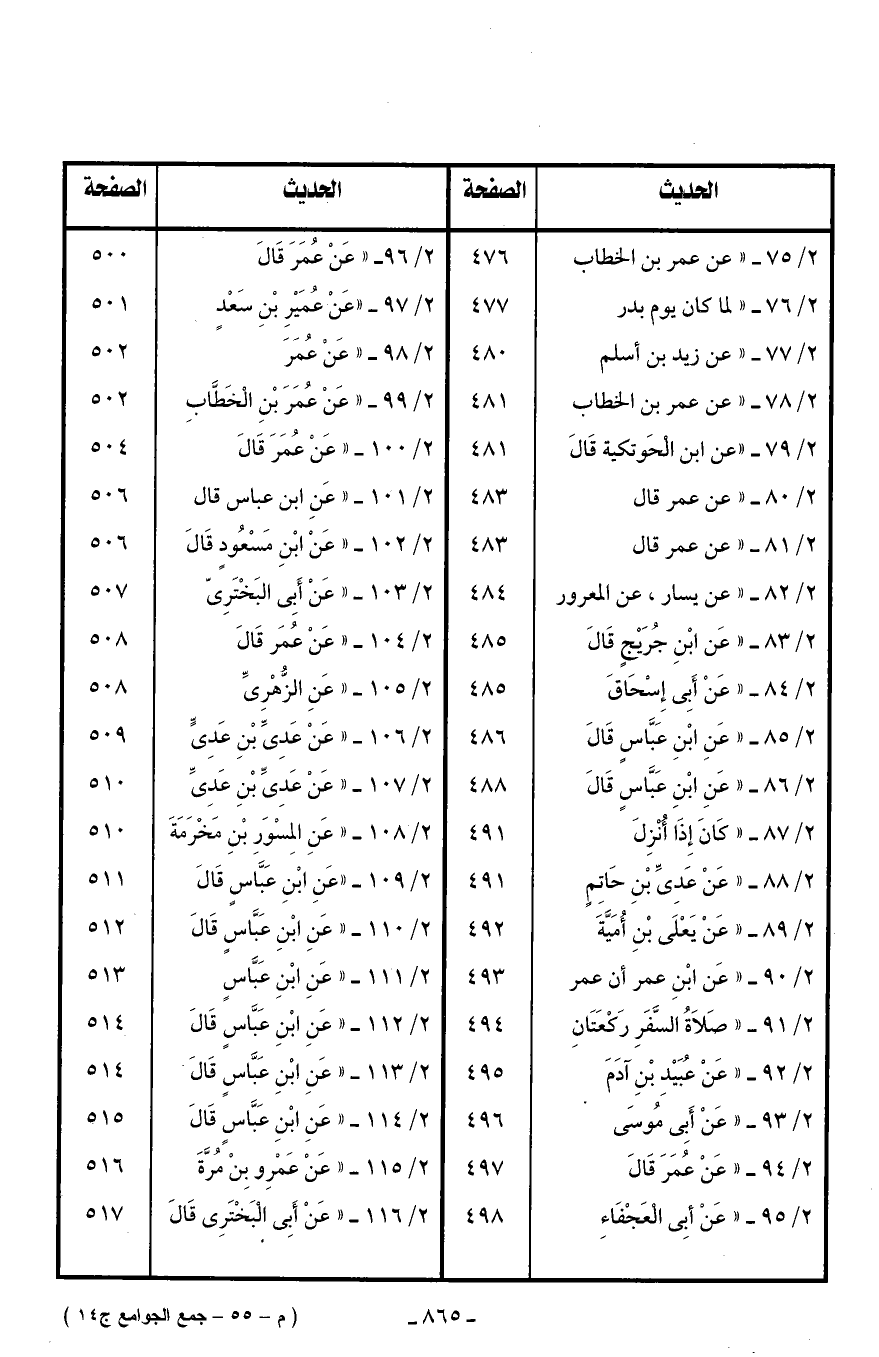 الحديث الصفحة الحديث الصفحة
٢/ ٧٥ ـ « عن عمر بن الخطاب ٤٧٦ ٢/ ٩٦ـ « عَنْ عُمَرَ قَالَ ٥٠٠
٢/ ٧٦ ـ « لما كان يوم بدر ٤٧٧ ٢/ ٩٧ ـ «عَنْ عُمَيْرِ بْنِ سَعْدٍ ٥٠١
٢/ ٧٧ ـ « عن زيد بن أسلم ٤٨٠ ٢/ ٩٨ ـ « عَنْ عُمَرَ ٥٠٢
٢/ ٧٨ ـ « عن عمر بن الخطاب ٤٨١ ٢/ ٩٩ ـ « عَنْ عُمَرَ بْنِ الْخَطَّابِ ٥٠٢
٢/ ٧٩ ـ «عن ابن الْحَوتكية قَالَ ٤٨١ ٢/ ١٠٠ ـ « عَنْ عُمَرَ قَالَ ٥٠٤
٢/ ٨٠ ـ « عن عمر قال ٤٨٣ ٢/ ١٠١ ـ « عَنِ ابن عباس قال ٥٠٦
٢/ ٨١ ـ « عن عمر قال ٤٨٣ ٢/ ١٠٢ ـ « عَنْ ابْنِ مَسْعُودٍ قَالَ ٥٠٦
٢/ ٨٢ ـ « عن يسار ، عن المعرور ٤٨٤ ٢/ ١٠٣ ـ « عَنْ أَبِى البَخْتَرِىِّ ٥٠٧
٢/ ٨٣ ـ « عَن ابْنِ جُرَيْجٍ قَالَ ٤٨٥ ٢/ ١٠٤ ـ « عَنْ عُمَرَ قَالَ ٥٠٨
٢/ ٨٤ ـ « عَنْ أَبِى إِسْحَاقَ ٤٨٥ ٢/ ١٠٥ ـ « عَنِ الزُّهْرِىِّ ٥٠٨
٢/ ٨٥ ـ « عَنِ ابْنِ عَبَّاسٍ قَالَ ٤٨٦ ٢/ ١٠٦ ـ « عَنْ عَدِىِّ بْنِ عَدِىٍّ ٥٠٩
٢/ ٨٦ ـ « عَنِ ابْنِ عَبَّاسٍ قَالَ ٤٨٨ ٢/ ١٠٧ ـ « عَنْ عَدِىِّ بْنِ عَدِىٍّ ٥١٠
٢/ ٨٧ ـ « كَانَ إِذَا أُنْزِلَ ٤٩١ ٢/ ١٠٨ ـ « عَنِ المِسْوَرِ بْنِ مَخْرَمَةَ ٥١٠
٢/ ٨٨ ـ « عَنْ عَدِىِّ بْنِ حَاتِمٍ ٤٩١ ٢/ ١٠٩ ـ «عَنِ ابْنِ عَبَّاسٍ قَالَ ٥١١
٢/ ٨٩ ـ « عَنْ يَعْلَى بْنِ أُمَيَّةَ ٤٩٢ ٢/ ١١٠ ـ « عَنِ ابْنِ عَبَّاسٍ قَالَ ٥١٢
٢/ ٩٠ ـ « عَن ابْنِ عمر أن عمر ٤٩٣ ٢/ ١١١ ـ « عَنِ ابْنِ عَبَّاسٍ ٥١٣
٢/ ٩١ ـ « صَلَاةُ السَّفَرِ رَكْعَتَانِ ٤٩٤ ٢/ ١١٢ ـ « عَنِ ابْنِ عَبَّاسٍ قَالَ ٥١٤
٢/ ٩٢ ـ « عَنْ عُبَيْدِ بْنِ آدَمَ ٤٩٥ ٢/ ١١٣ ـ « عَنِ ابْنِ عَبَّاسٍ قَالَ ٥١٤
٢/ ٩٣ ـ « عَنْ أَبِى مُوسَى ٤٩٦ ٢/ ١١٤ ـ « عَنِ ابْنِ عَبَّاسٍ قَالَ ٥١٥
٢/ ٩٤ ـ « عَنْ عُمَرَ قَالَ ٤٩٧ ٢/ ١١٥ ـ « عَنْ عَمْرِو بِنْ مُرَّةَ ٥١٦
٢/ ٩٥ ـ « عَنْ أبى الْعَجْفَاءِ ٤٩٨ ٢/ ١١٦ ـ « عَنْ أَبِى الْبَخْتَرِى قَالَ ٥١٧
ـ ٨٦٥ ـ ( م – ٥٥ – جمع الجوامع ج١٤ )